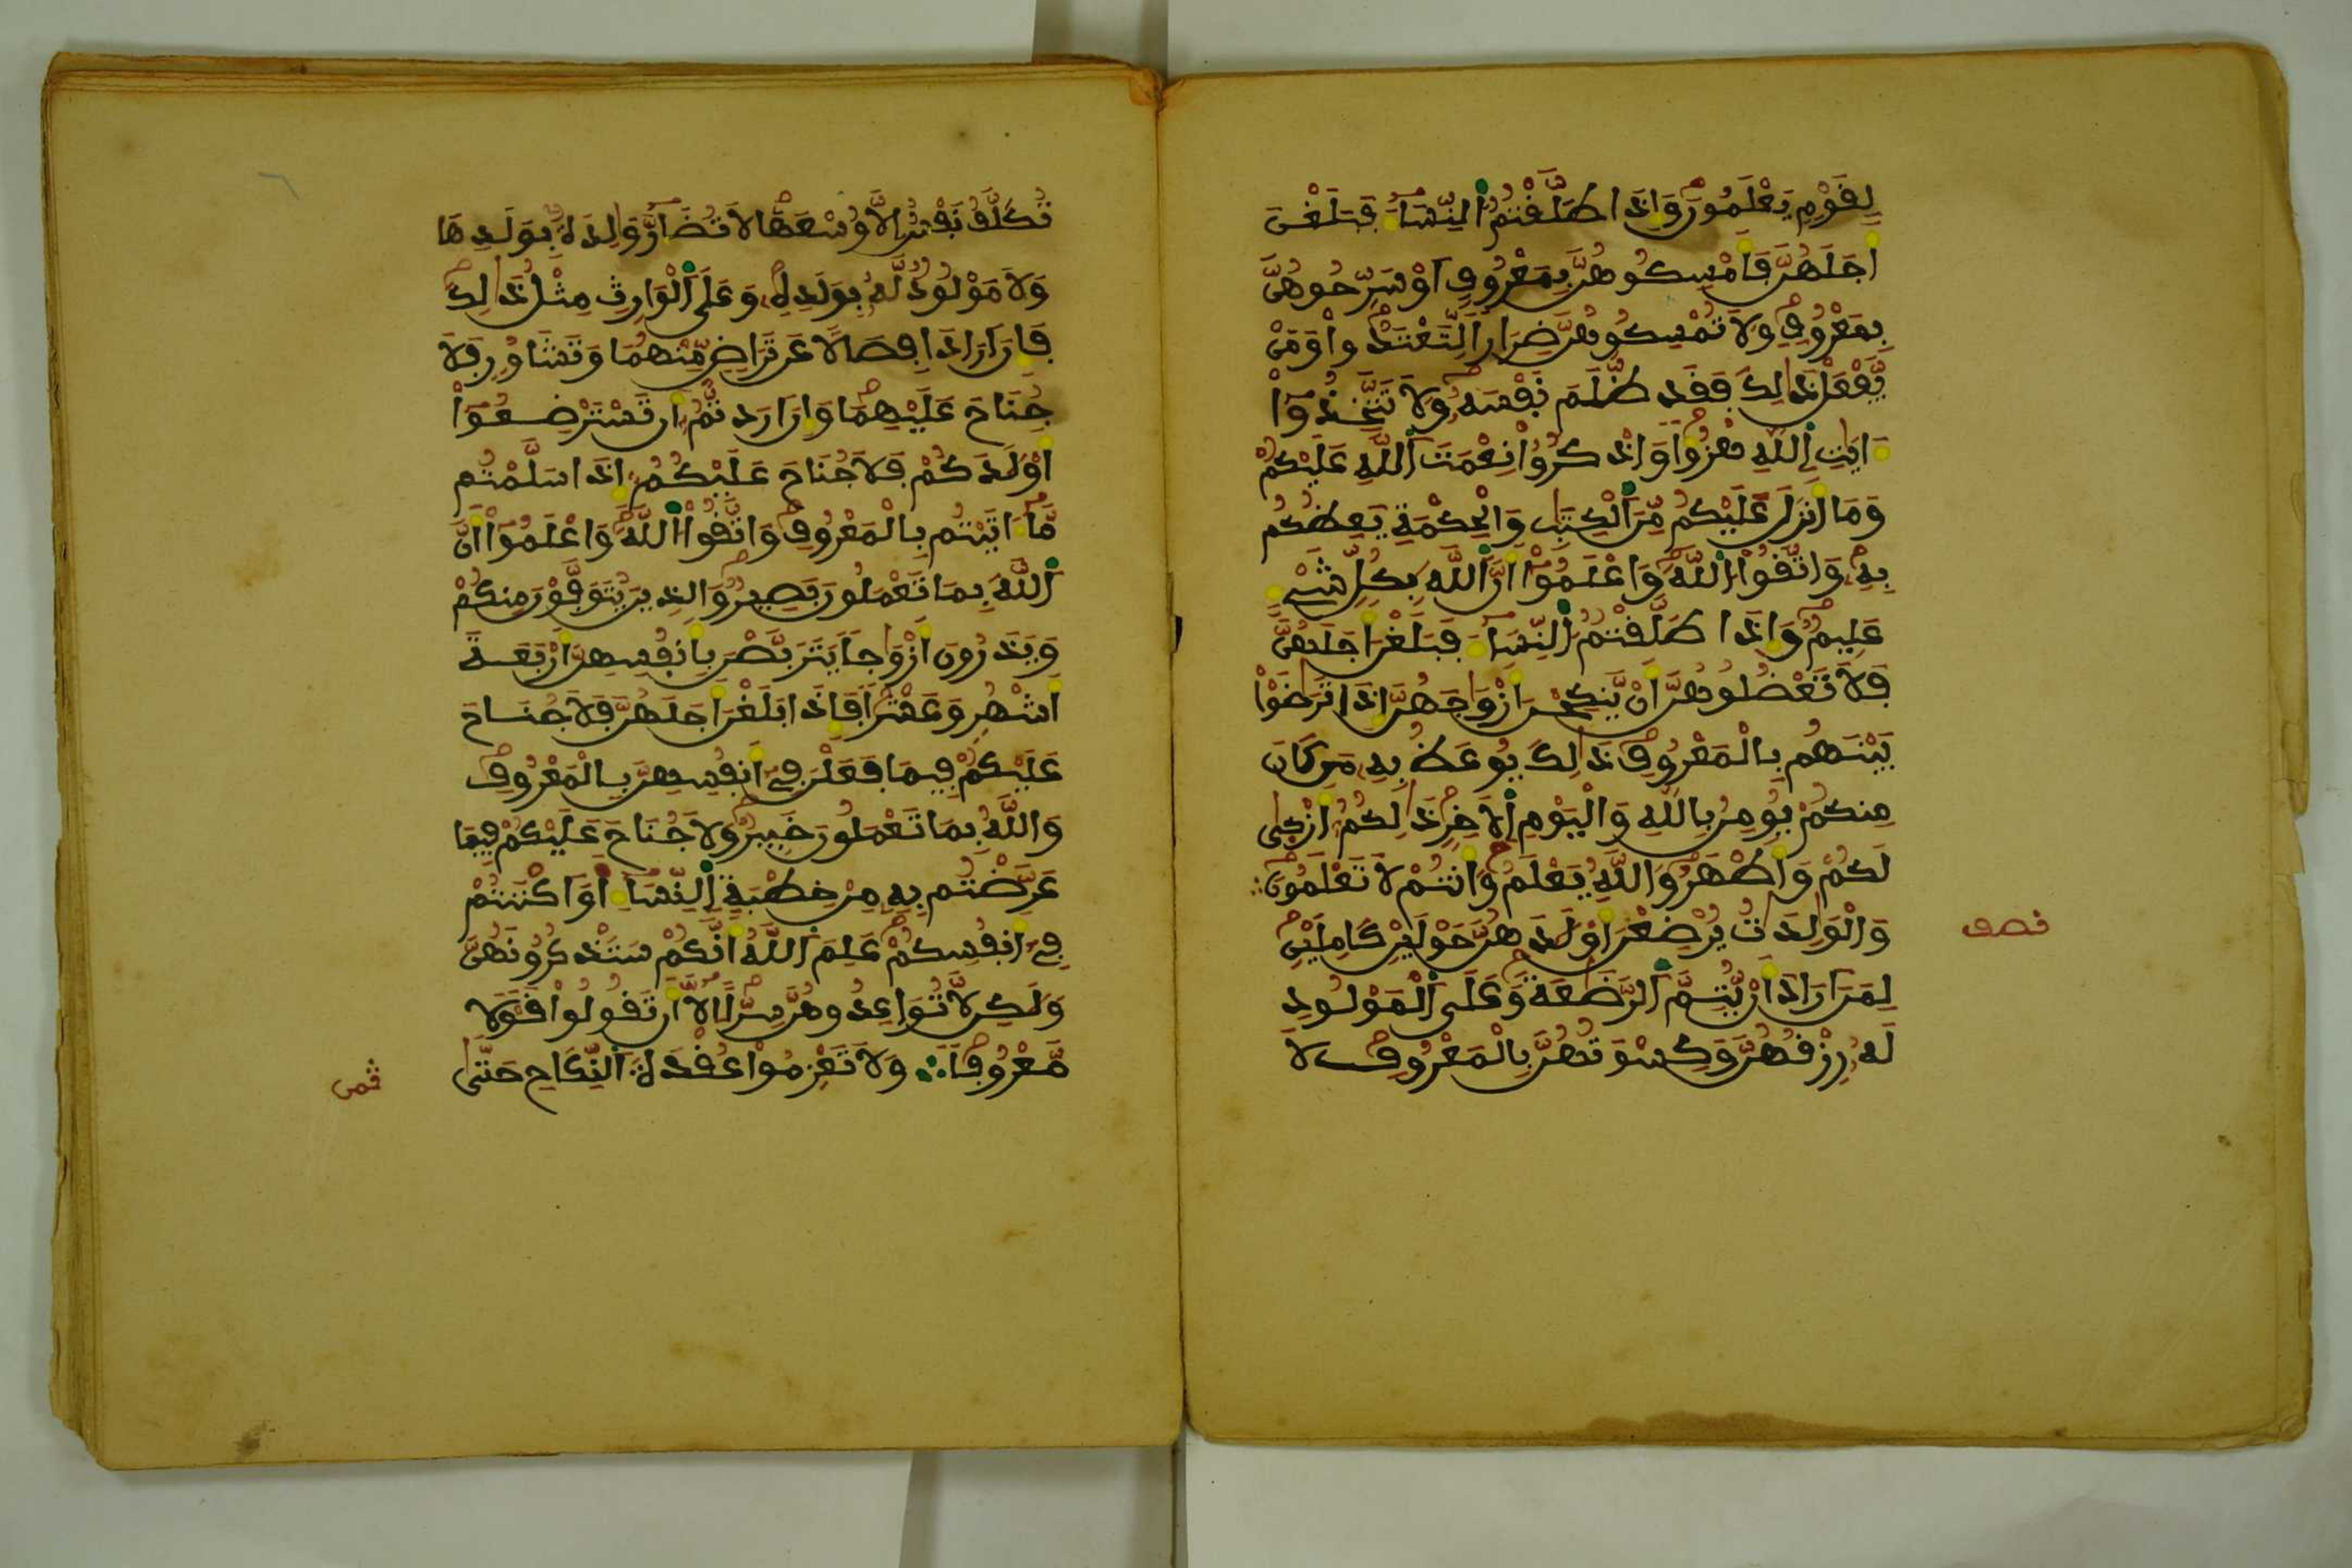 لِقَوْمٍ يَعْلَمُونَ وَإِذَا طَلَّقْتُمُ النِّسَاءَ فَبَلَغْنَ
أَجَلَهُنَّ فَأَمْسِكُوهُنَّ بِمَعْرُوفٍ أَوْ سَرِّحُوهُنَّ
بِمَعْرُوفٍ وَلَا تُمْسِكُوهُنَّ ضِرَارًا لِّتَعْتَدُوا وَمَنْ
يَّفْعَلْ ذَٰلِكَ فَقَد ظَّلَمَ نَفْسَهُ وَلَا تَتَّخِذُوا
ءَايَٰتِ اللَّهِ هُزُؤًا وَاذْكُرُوا نِعْمَتَ اللَّهِ عَلَيْكُمْ
وَمَا أَنزَلَ عَلَيْكُم مِّنَ الْكِتَٰبِ وَالْحِكْمَةِ يَعِظُكُم
بِهِ وَاتَّقُوا اللَّهَ وَاعْلَمُوا أَنَّ اللَّهَ بِكُلِّ شَيْءٍ
عَلِيمٌ وَإِذَا طَلَّقْتُمُ النِّسَاءَ فَبَلَغْنَ أَجَلَهُنَّ
فَلَا تَعْضُلُوهُنَّ أَنْ يَّنكِحْنَ أَزْوَٰجَهُنَّ إِذَا تَرَٰضَوْا
بَيْنَهُم بِالْمَعْرُوفِ ذَٰلِكَ يُوعَظُ بِهِ مَن كَانَ
مِنكُمْ يُومِنُ بِاللَّهِ وَالْيَوْمِ الْأَخِرِ ذَٰلِكُمُ أَزْكَىٰ
لَكُمْ وَأَطْهَرُ وَاللَّهُ يَعْلَمُ وَأَنتُمْ لَا تَعْلَمُونَ
وَالْوَٰلِدَٰتُ يُرْضِعْنَ أَوْلَٰدَهُنَّ حَوْلَيْنِ كَامِلَيْنِ
نصف
لِمَنَ أَرَادَ أَنْ يُّتِمَّ الرَّضَٰعَةَ وَعَلَى الْمَوْلُودِ
لَهُ رِزْقُهُنَّ وَكِسْوَتُهُنَّ بِالْمَعْرُوفِ لَا
تُكَلَّفُ نَفْسٌ إِلَّا وُسْعَهَا لَا تُضَارَّ وَٰلِدَةٌ بِوَلَدِهَا
وَلَا مَوْلُودٌ لَّهُ بِوَلَدِهِ وَعَلَى الْوَارِثِ مِثْلُ ذَٰلِكَ
فَإِنَ أَرَادَا فِصَالًا عَن تَرَاضٍ مِّنْهُمَا وَتَشَاوُرٍ فَلَا
جُنَاحَ عَلَيْهِمَا وَإِنَ أَرَدتُّمُ أَن تَسْتَرْضِعُوا
أَوْلَٰدَكُمْ فَلَا جُنَاحَ عَلَيْكُمُ إِذَا سَلَّمْتُم
مَّا ءَاتَيْتُم بِالْمَعْرُوفِ وَاتَّقُوا اللَّهَ وَاعْلَمُوا أَنَّ
اللَّهَ بِمَا تَعْمَلُونَ بَصِيرٌ وَالذِينَ يُتَوَفَّوْنَ مِنكُمْ
وَيَذَرُونَ أَزْوَٰجًا يَتَرَبَّصْنَ بِأَنفُسِهِنَّ أَرْبَعَةَ
أَشْهُرٍ وَعَشْرًا فَإِذَا بَلَغْنَ أَجَلَهُنَّ فَلَا جُنَاحَ
عَلَيْكُمْ فِيمَا فَعَلْنَ فِي أَنفُسِهِنَّ بِالْمَعْرُوفِ
وَاللَّهُ بِمَا تَعْمَلُونَ خَبِيرٌ وَلَا جُنَاحَ عَلَيْكُمْ فِيمَا
عَرَّضْتُم بِهِ مِنْ خِطْبَةِ النِّسَاءِ أَوَ أَكْنَنتُمْ
فِي أَنفُسِكُمْ عَلِمَ اللَّهُ أَنَّكُمْ سَتَذْكُرُونَهُنَّ
وَلَٰكِن لَّا تُوَاعِدُوهُنَّ سِرًّا إِلَّا أَن تَقُولُوا قَوْلًا
مَّعْرُوفًا وَلَا تَعْزِمُوا عُقْدَةَ النِّكَاحِ حَتَّىٰ
ثمن